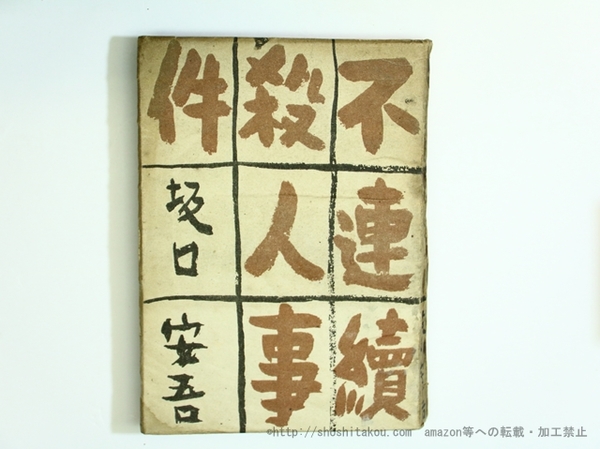 不連續
殺人事
件
坂口
安吾
©http://shoshitakou.com amazon等への転載・加工禁止